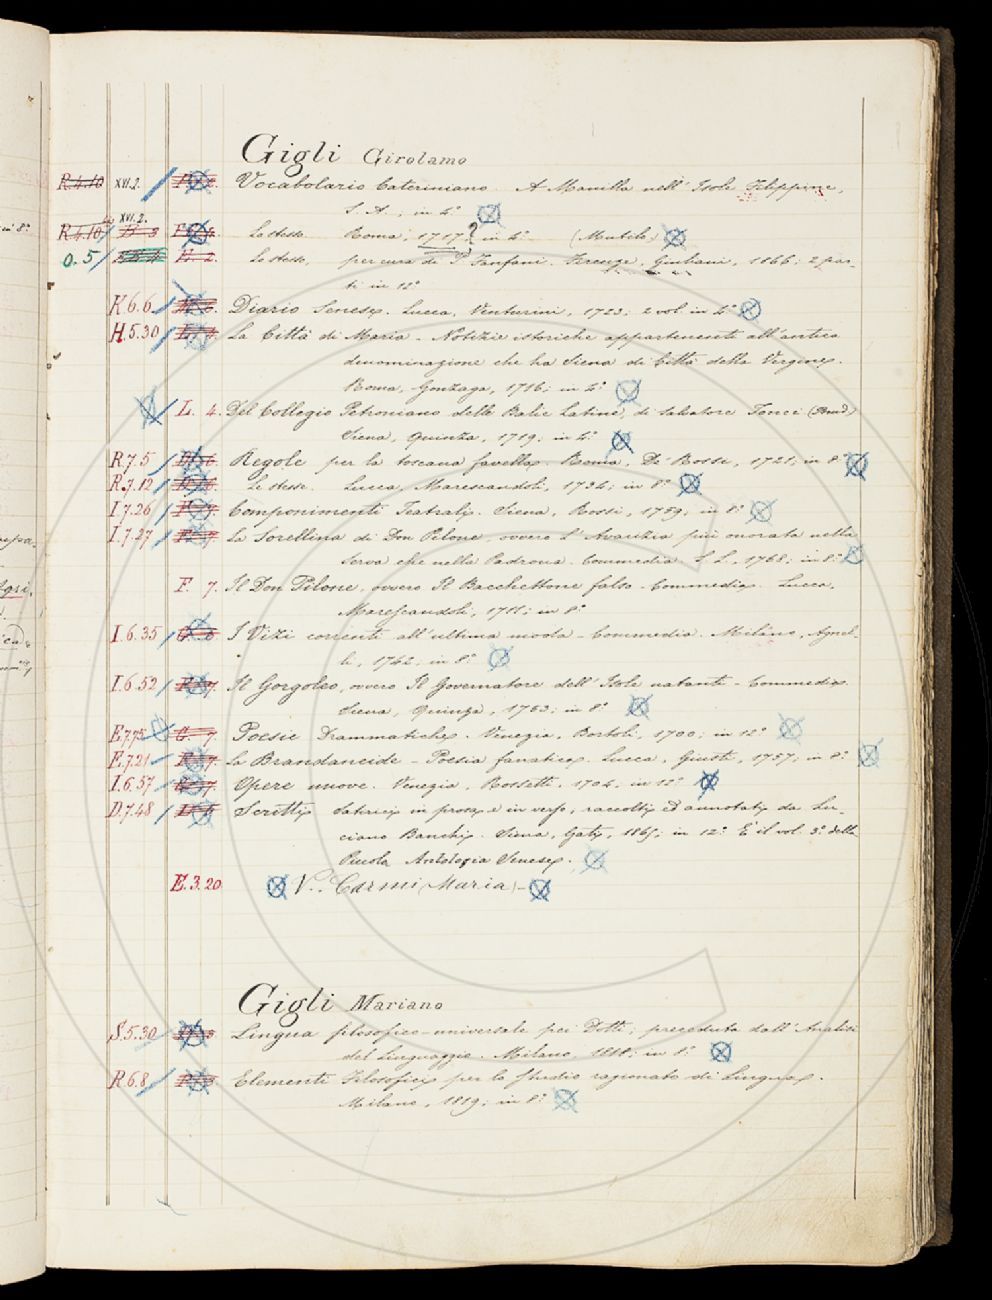 Gigli Girolamo
R.4.10 XVI.2. Vocabolario Cateriniano. A Manilla nell' Isole Filippine,
S. A., in 4.°
R.4.10 XVI.2. Lo stesso. Roma, 1717? in 4.° (Mutilo)
O.5 H. 2. Lo stesso, per cura di P. Fanfani. Firenze, Giuliani, 1866; 2 par-
ti in 12.°
K.6.6 Diario Senese. Lucca, Venturini, 1723; 2 vol. in 4.°
H.5.30 La Città di Maria - Notizie istoriche appartenenti all'antica
denominazione che ha Siena di Città della Vergine.
Roma, Gonzaga, 1716; in 4.°
L. 4. Del Collegio Petroniano delle Balie Latine, di Salvatore Tonci
Siena, Quinza, 1719; in 4.°
R.7.5 Regole per la toscana favella. Roma, De' Rossi, 1721; in 8.°
R.7.12 Le stesse. Lucca, Marescandoli, 1734; in 8.°
I.7.26 Componimenti Teatrali. Siena, Rossi, 1759; in 8.°
I.7.27 La Sorellina di Don Pilone, ovvero l'Avarizia più onorata nella
Serva che nella Padrona. Commedia. S. L., 1768; in 8.°
F. 7. Il Don Pilone, ovvero Il Bacchettone falso. Commedia. Lucca,
Marescandoli, 1711; in 8.°
I.6.35 I Vizi correnti all'ultima moda - Commedia. Milano, Agnel-
li, 1742; in 8.°
I.6.52 Il Gorgoleo, ovvero Il Governatore dell' Isole natanti - Commedia
Siena, Quinza, 1753; in 8.°
E.7.75 G. 7. Poesie Drammatiche. Venezia, Bortoli, 1700; in 12.°
E.7.21 La Brandaneide - Poesia fanatica. Lucca, Giusti, 1757, in 8.°
I.6.57 Opere nuove. Venezia, Rossetti, 1704; in 12.°
D.7.48 Scritti satirici in prosa e in verso, raccolti ed annotati da Lu-
ciano Banchi. Siena, Gati, 1865; in 12.° È il vol. 3.° della
Piccola Antologia Senese.
E.3.20 V. Carmi (Maria) -
Gigli Mariano
S.5.30 Lingua filosofico-universale pei Dotti, preceduta dall'Analisi
del Linguaggio. Milano, 1818; in 8.°
R.6.8 Elementi Filosofici per lo Studio ragionato di Lingua.
Milano, 1819; in 8.°